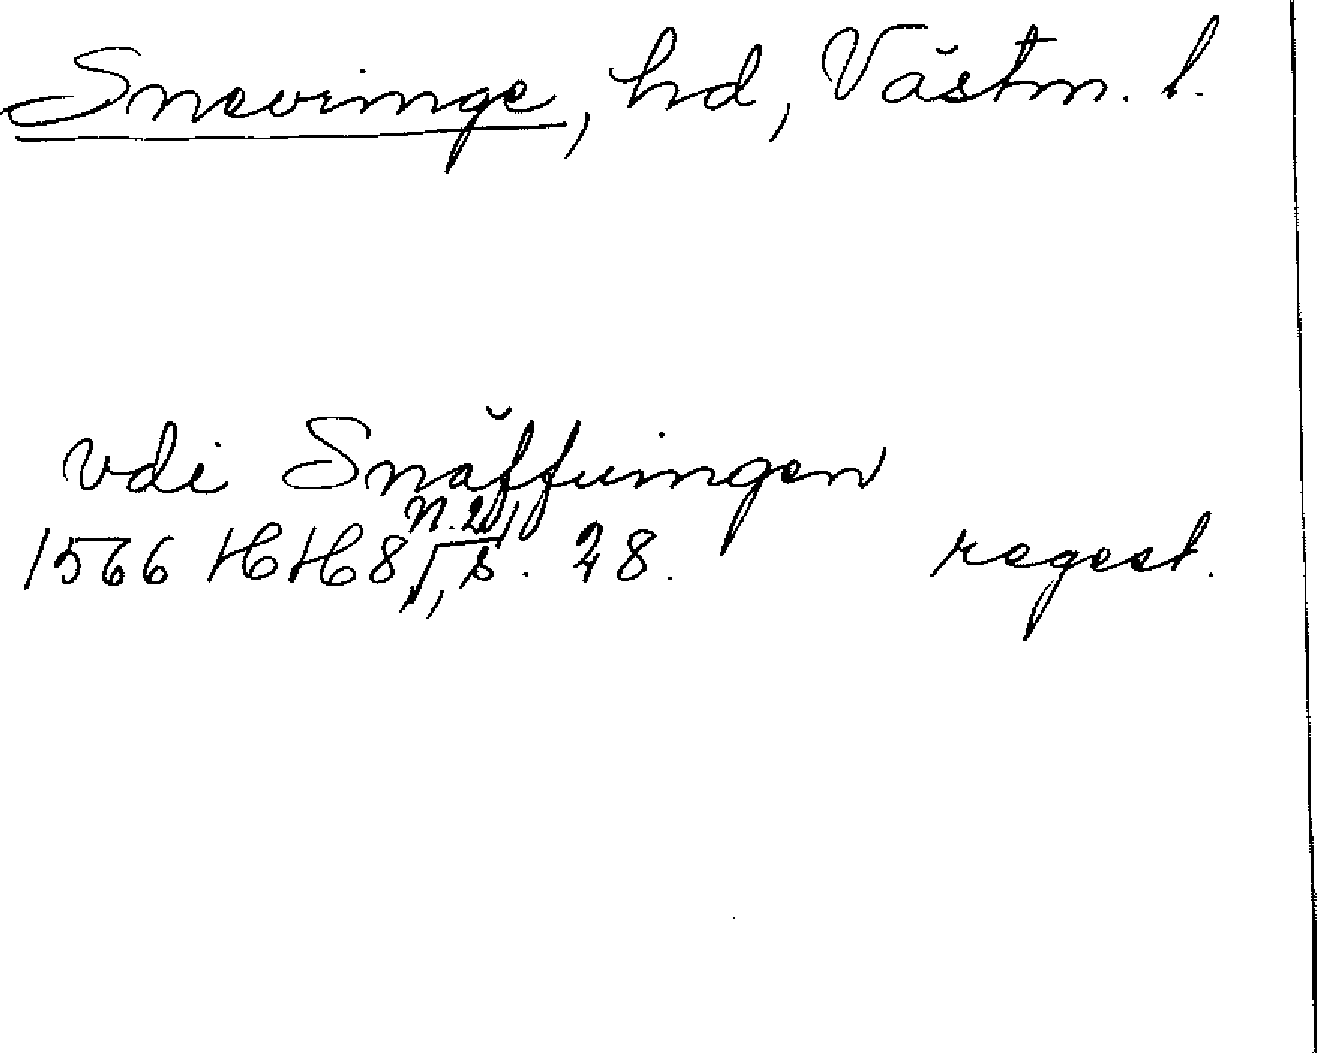 Snevringe, hd, Västm. l.
vdi Snäffuingen
1566 HH 8, N. 2, s. 28. regest.